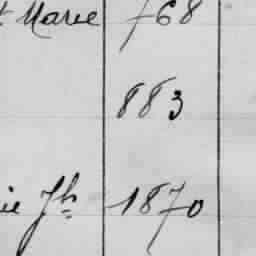 t Marie 768
883
ie Jh 1870